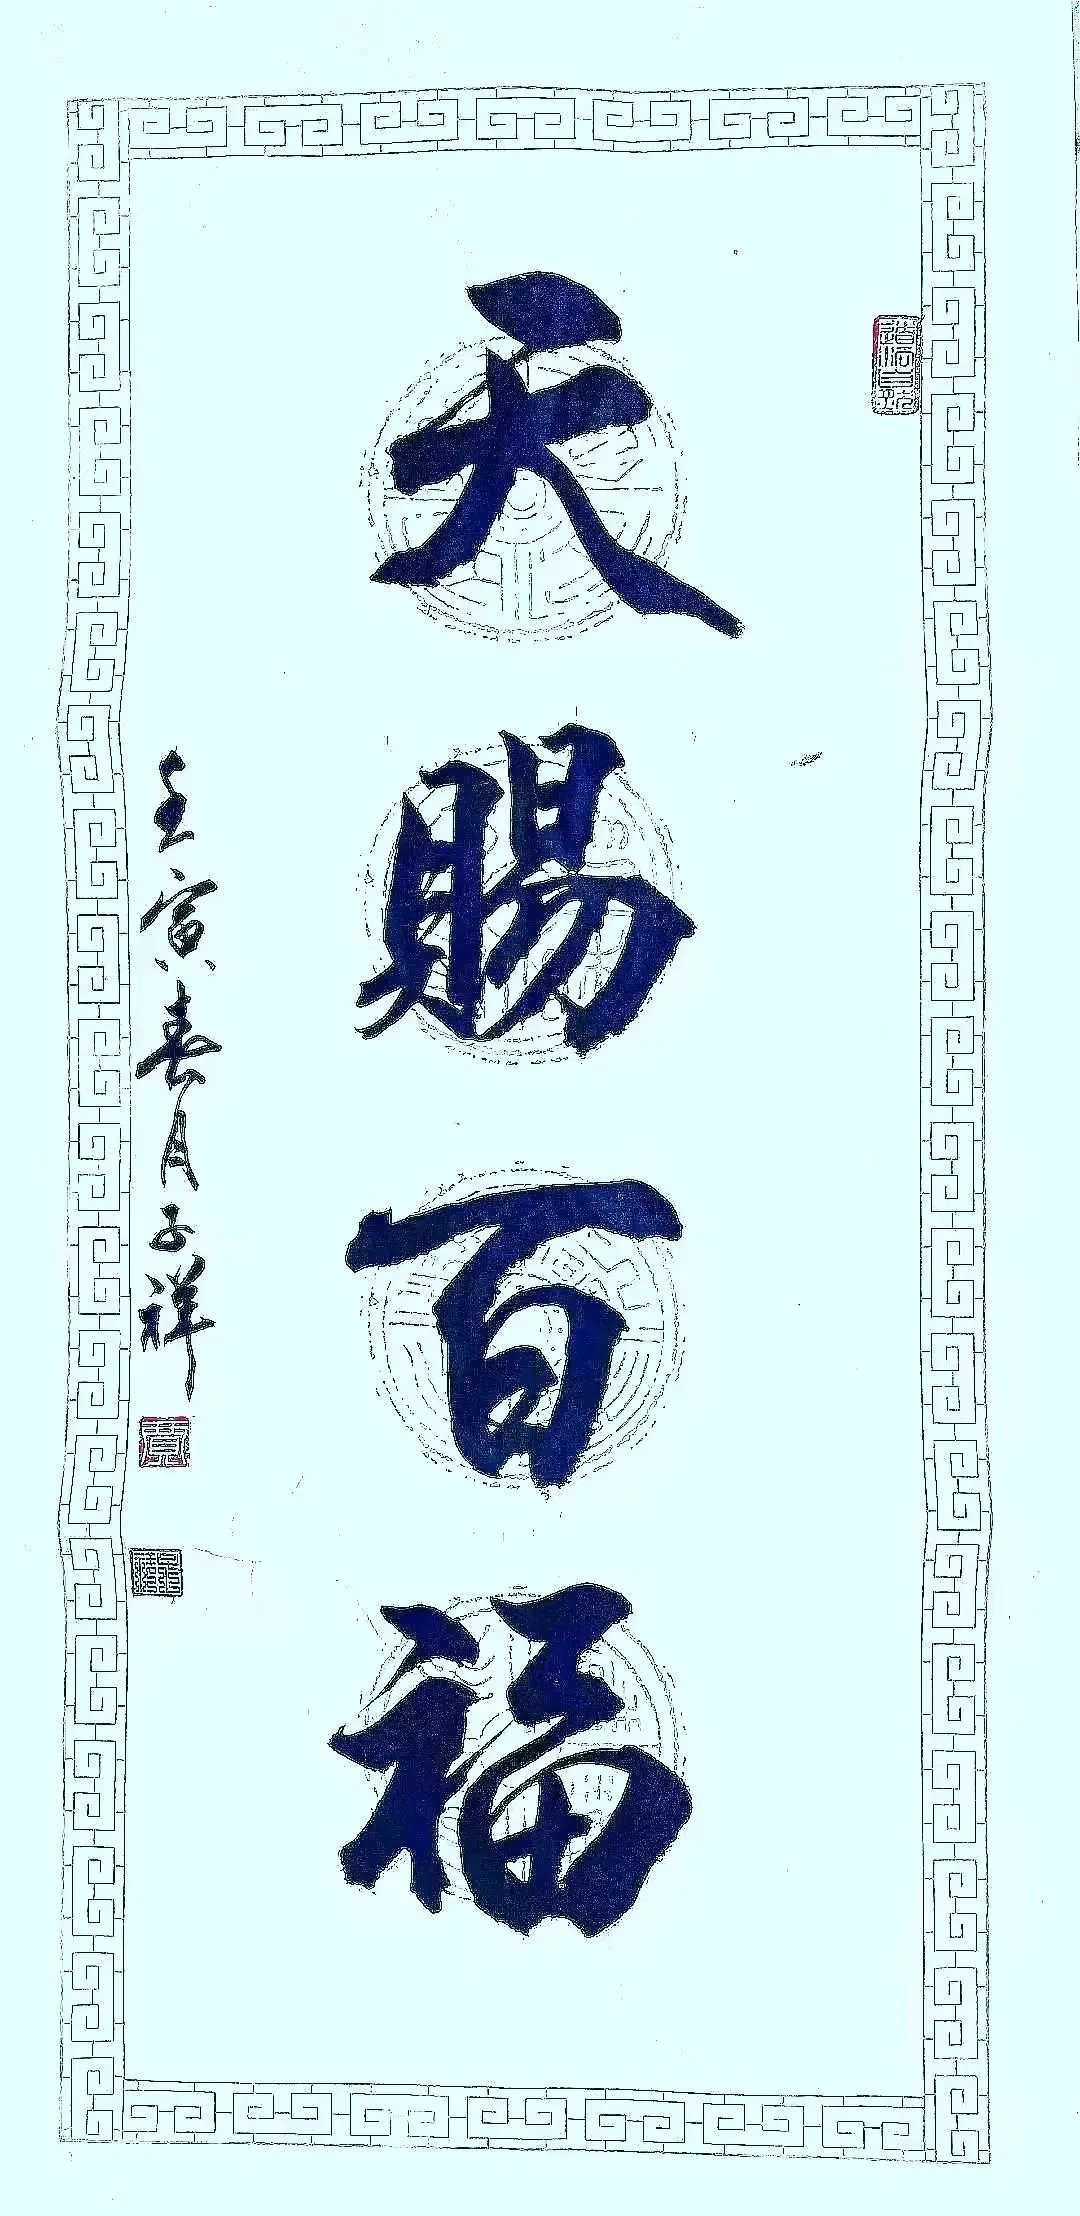 天賜百福
壬寅春月子祥